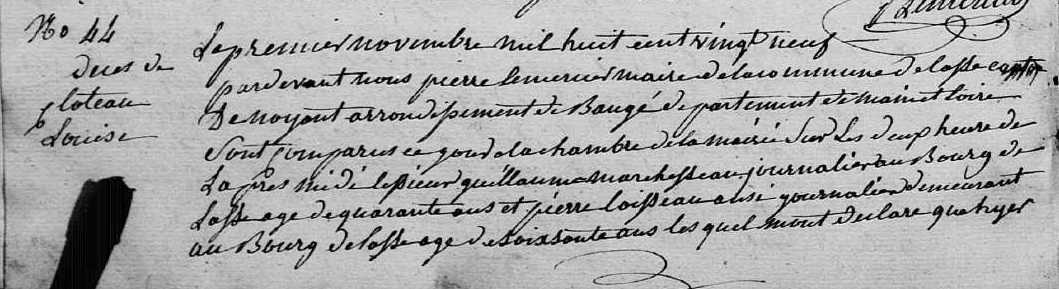 No 44
deces de
loteau
Louise
Le premier novembre mil huit cent vingt neuf
par devant nous pierre lemercier maire de la commune de lasse canton
De noyant arrondissement de Baugé departement de main et loire
Sont comparus ce gour a la chambre de la mairie Sur Les deux heure de
La pres midi le sieur guillaume marchesseau journalier au Bourg de
Lasse age de quarante ans et pierre loisseau ausi gournalier demeurant
au Bourg de lasse age de soixsante ans les quel mont declare qua hyer